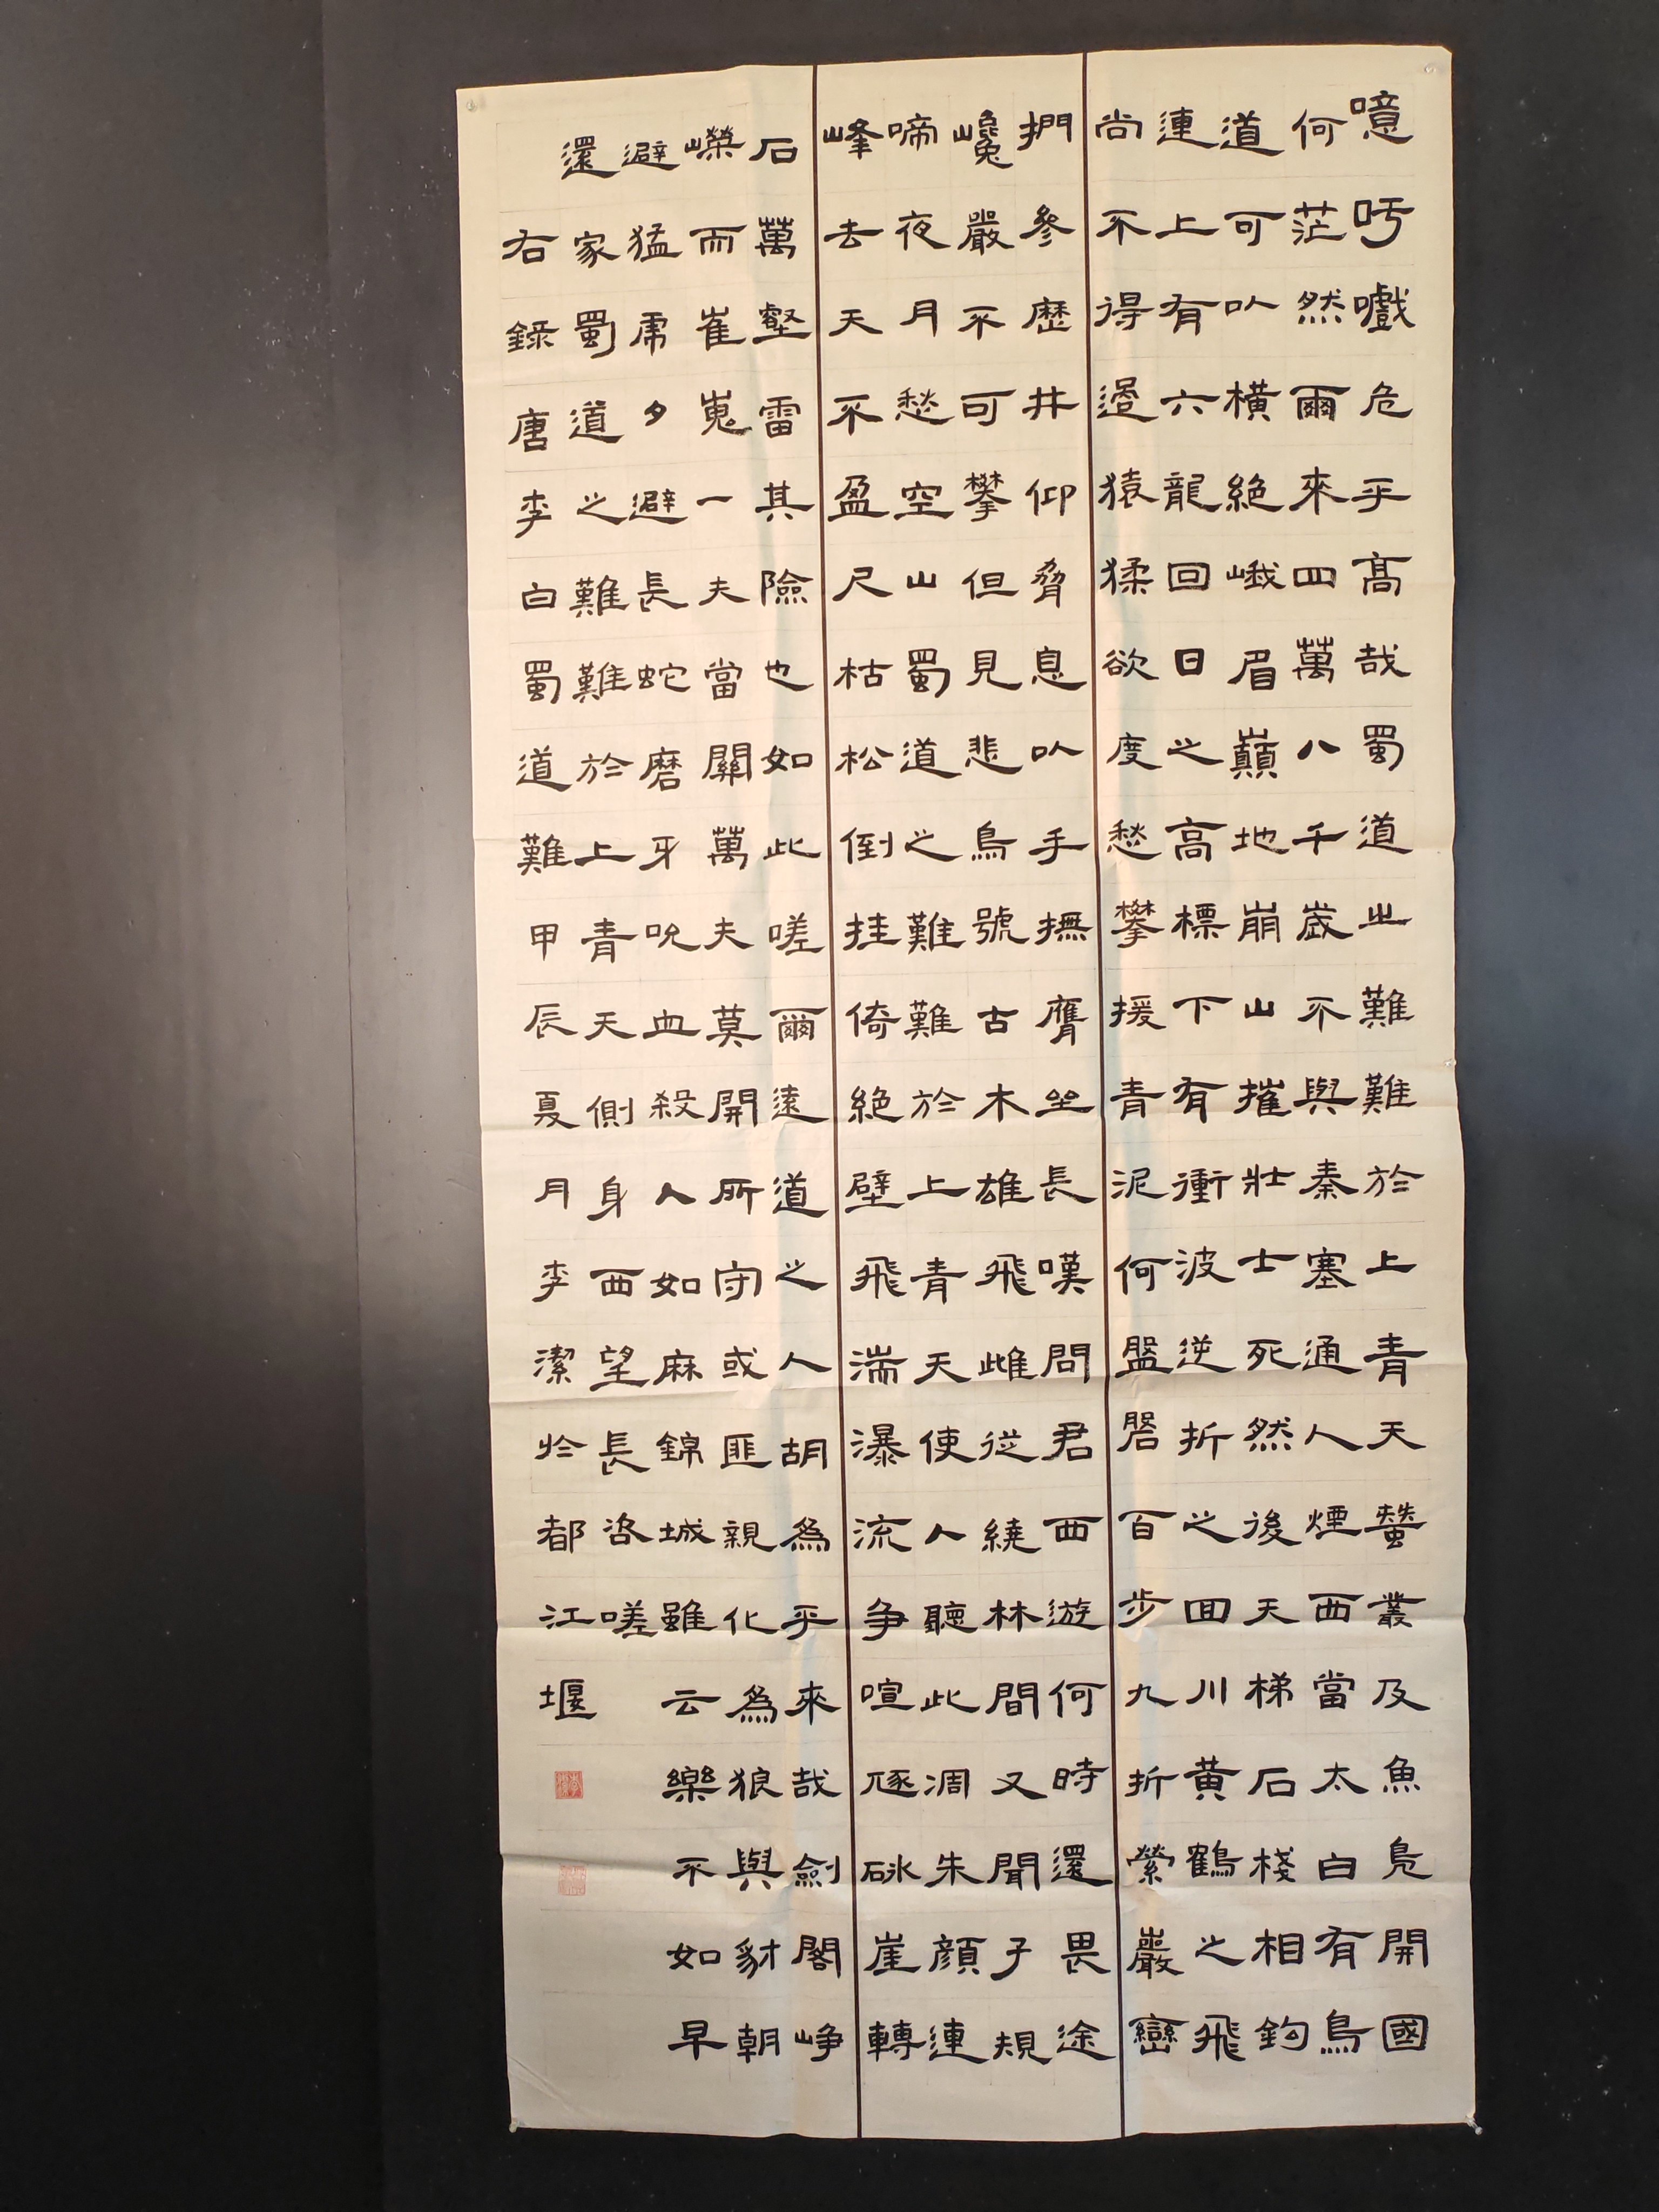 噫吁嚱危乎高哉蜀道之難難於上青天蠶叢及魚鳧開國
何茫然爾來四萬八千歲不與秦塞通人煙西當太白有鳥
道可以橫絕峨眉巔地崩山摧壯士死然後天梯石棧相鈎
連上有六龍回日之高標下有衝波逆折之囬川黃鶴之飛
尚不得過猿猱欲度愁攀援青泥何盤磐百步九折縈巖巒
捫參歷井仰脅息以手撫膺坐長嘆問君西遊何時還畏途
巉嚴不可攀但見悲鳥號古木雄飛雌從繞林間又聞子規
啼夜月愁空山蜀道之難難於上青天使人聽此凋朱顏連
峰去天不盈尺枯松倒挂倚絕壁飛湍瀑流爭喧豗砯崖轉
石萬壑雷其險也如此嗟爾遠道之人胡為乎來哉劍閣崢
嶸而崔嵬一夫當關萬夫莫開所守或匪親化為狼與豺朝
避猛虎夕避長蛇磨牙吮血殺人如麻錦城雖云樂不如早
還家蜀道之難難於上青天側身西望長咨嗟
右錄唐李白蜀道難甲辰夏月李潔於都江堰